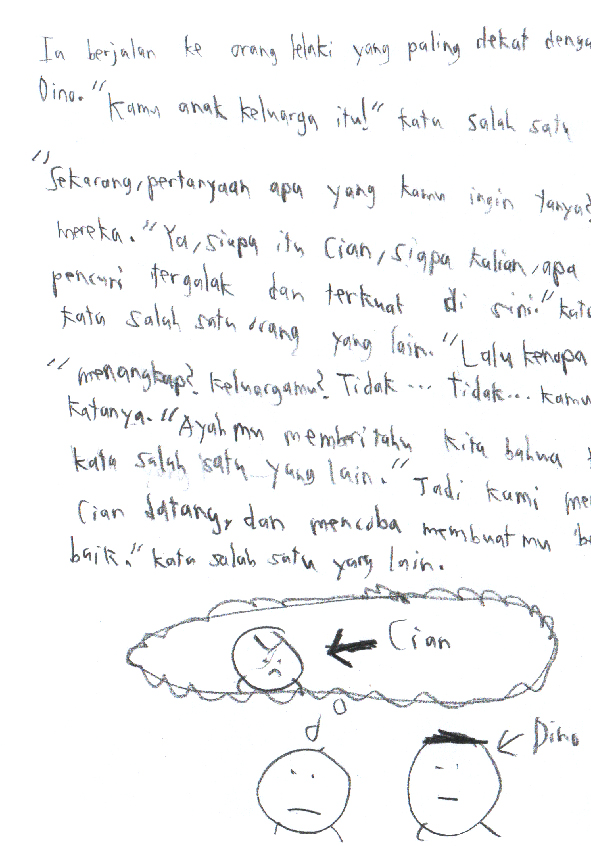 Ia berjalan ke orang lelaki yang paling dekat denga
Dino. "Kamu anak keluarga itu!" kata salah satu
"Sekarang, pertanyaan apa yang kamu ingin tanya?
mereka. "Ya, siapa itu Cian, siapa kalian, apa
pencuri tergalak dan terkuat di sini." kata
kata salah satu orang yang lain. "Lalu kenapa
"menangkap? keluargamu? Tidak... tidak... kamu
katanya. "Ayah mu memberi tahu kita bahwa
kata salah satu yang lain." Jadi kami me
Cian datang, dan mencoba membuat mu b
baik." kata salah satu yang lain.
Cian
Dino